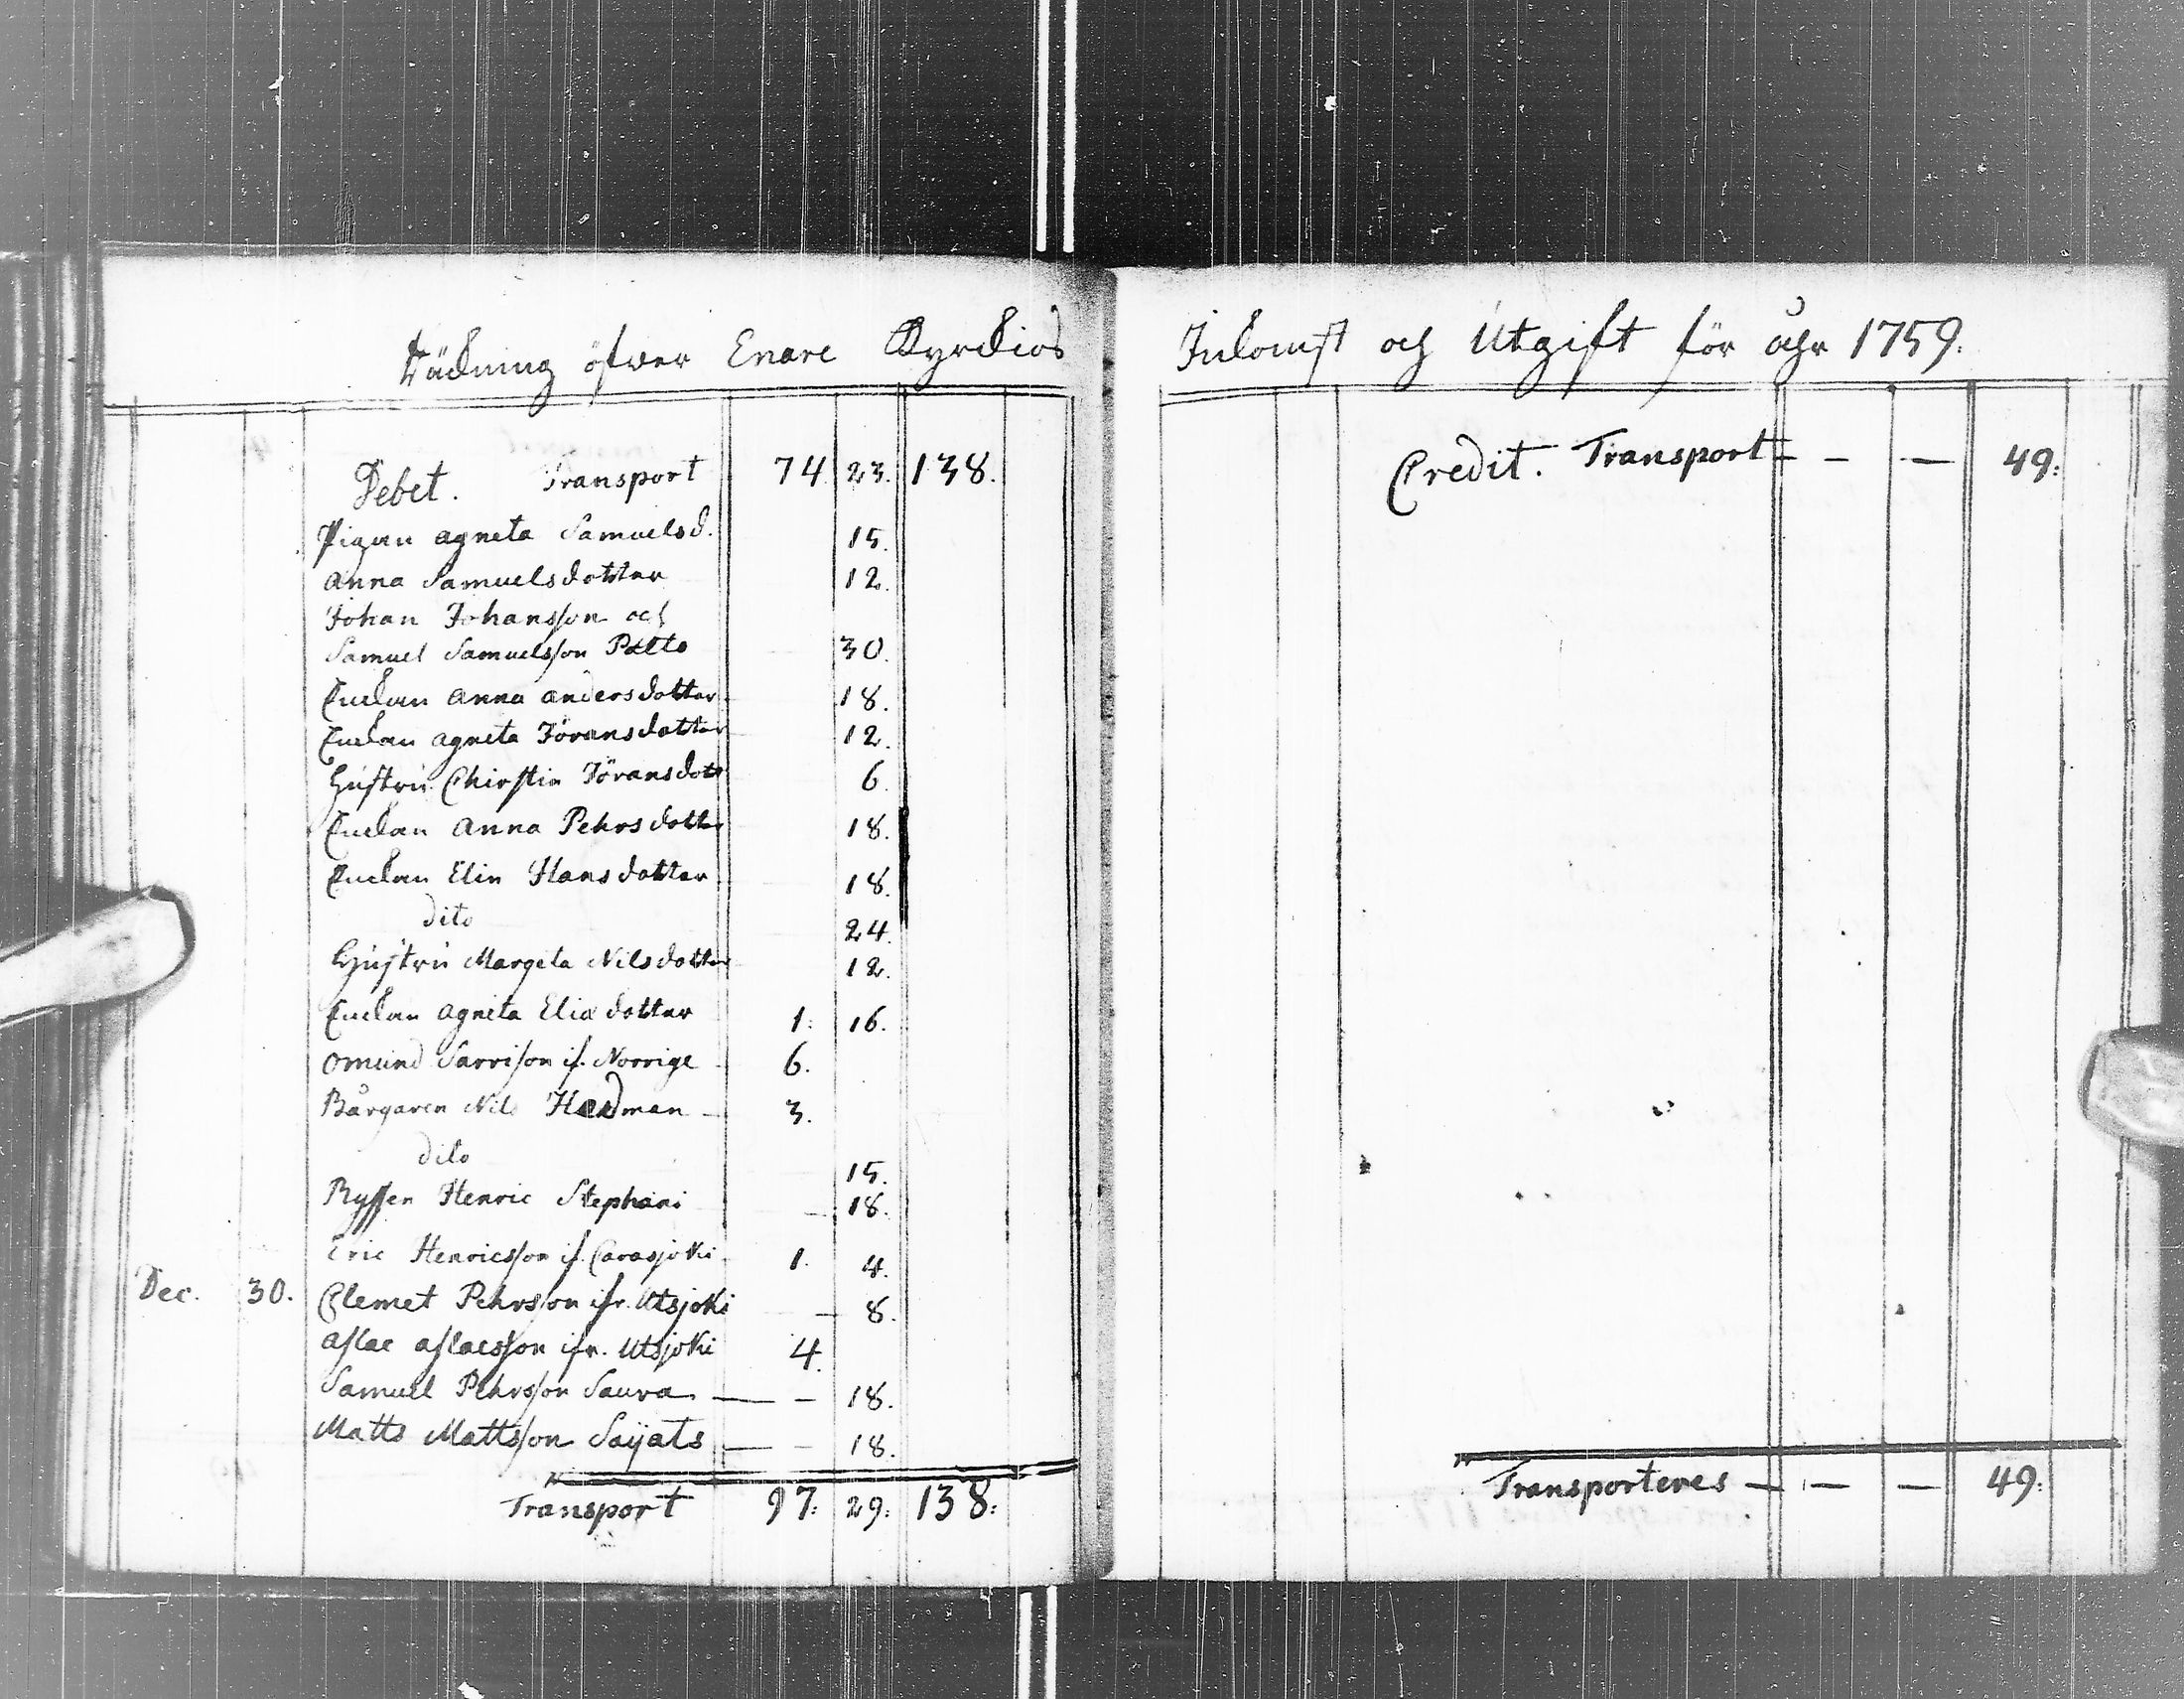 Räckning öfwer Enare Kyrckios
Debet. Transport 74. 23. 138.
Pigan agneta Samuelsd. 15.
anna Samuelsdotter 12.
Johan Johansson och
Samuel Samuelsson Palto 30.
Enckan anna andersdotter 18.
Enckan agneta Jöransdotter 12.
Hustru Chirstin Jöransdott 6.
Enckan anna Pehrsdotter 18.
Enckan Elin Hansdotter 18.
dito 24.
Hustru Margeta Nilsdotter 12.
Enckan agneta Eliædotter 1. 16.
omund Sarrison if. Norrige 6.
Bårgaren Nils Hedman — 3.
dito 15.
Ryssen Henric Stephani — 18.
Eric Henricsson if. Carasjoki 1. 4.
Dec. 30. Clemet Pehrsson ifr. Utsjoki — 8.
aslac aslacsson ifr. Utsjoki 4.
Samuel Pehrsson Saura — — 18.
Matts Mattsson Saijats — — 18.
Transport 97: 29: 138:
Inkomst och Utgift för åhr 1759.
Credit. Transport — — — 49:
Transporteres — — — 49: